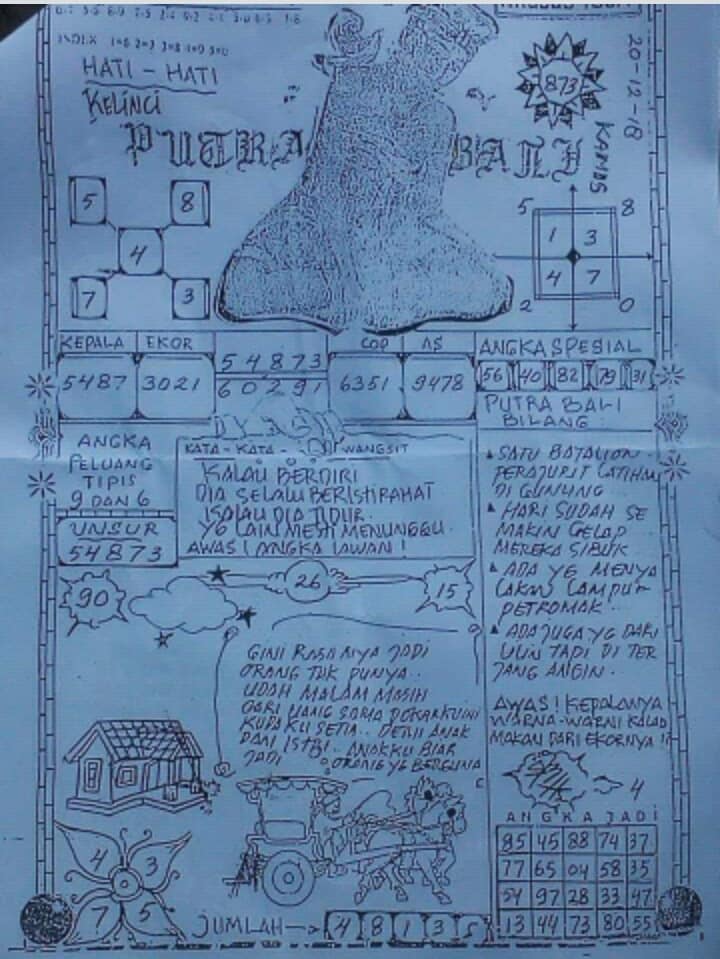 HATI - HATI
Kelinci
873
20-12-18
KAMIS
PUTRA BALI
5 8
4
7 3
5 8
1 3
4 7
2 0
KEPALA EKOR
5487 3021
54873
60291
COP AS
6351 9478
ANGKA SPESIAL
56 40 82 79 31
PUTRA BALI
BILANG:
ANGKA
PELUANG
TIPIS
9 DAN 6
UNSUR
54873
KATA - KATA - WANGSIT
KALAU BERDIRI
DIA SELALU BERISTIRAHAT
KALAU DIA TIDUR.
YG LAIN MESTI MENUNGGU.
AWAS! ANGKA LAWAN!
SATU BATALION
PERAJURIT LATIHAN
DI GUNUNG
HARI SUDAH SE
MAKIN GELAP
MEREKA SIBUK
ADA YG MENYA
LAKAN LAMPU
PETROMAK
ADA JUGA YG DARI
TADI DI TER
JANG ANGIN.
AWAS! KEPALANYA
WARNA-WARNI KALAU
MAKAN DARI EKORNYA!!
90
26
15
GINI RASANYA JADI
ORANG TAK PUNYA..
UDAH MALAM MASIH
CARI UANG SAMA
KUDAKU SETIA.. DEMI ANAK
DAN ISTRI.. ANAKKU BIAR
JADI ORANG YG BERGUNA
4
ANGKA JADI
85 45 88 74 37
77 65 04 58 35
54 97 28 33 47
13 44 73 80 55
4 3
7 5
JUMLAH 4 8 1 3 5